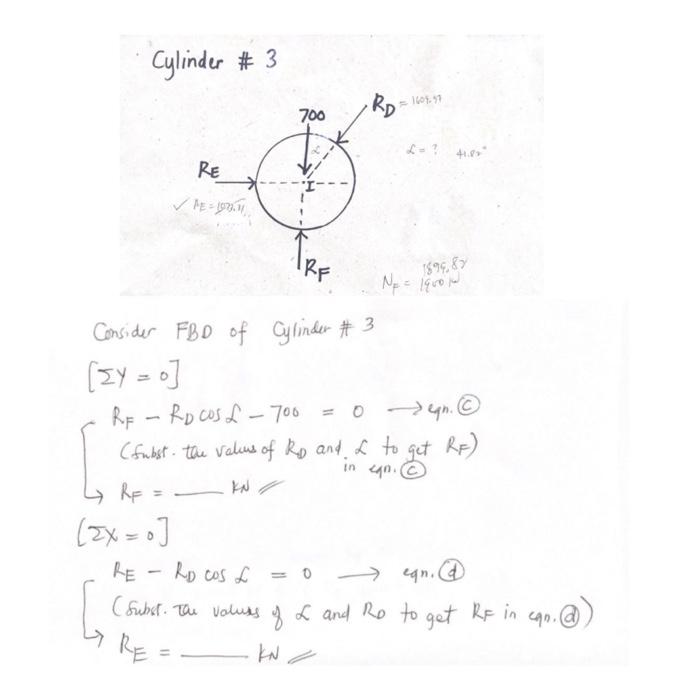 Cylinder # 3
700
R_D = 1609.97
α
α = ? 41.82°
R_E
I
R_F
1899.82
N_F = 1900
Consider FBD of Cylinder # 3
[ΣY = 0]
R_F - R_D cos α - 700 = 0 → eqn. ⓒ
(Subst. the values of R_D and α to get R_F)
in eqn. ⓒ
→ R_F = ____ kN
[ΣX = 0]
R_E - R_D cos α = 0 → eqn. ⓓ
(Subst. The values of α and R_D to get R_F in eqn. ⓓ)
→ R_E = ____ kN